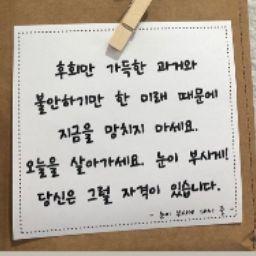 후회만 가득한 과거와
불안하기만 한 미래 때문에
지금을 망치지 마세요.
오늘을 살아가세요. 눈이 부시게!
당신은 그럴 자격이 있습니다.
- 눈이 부시게 대사 중 -